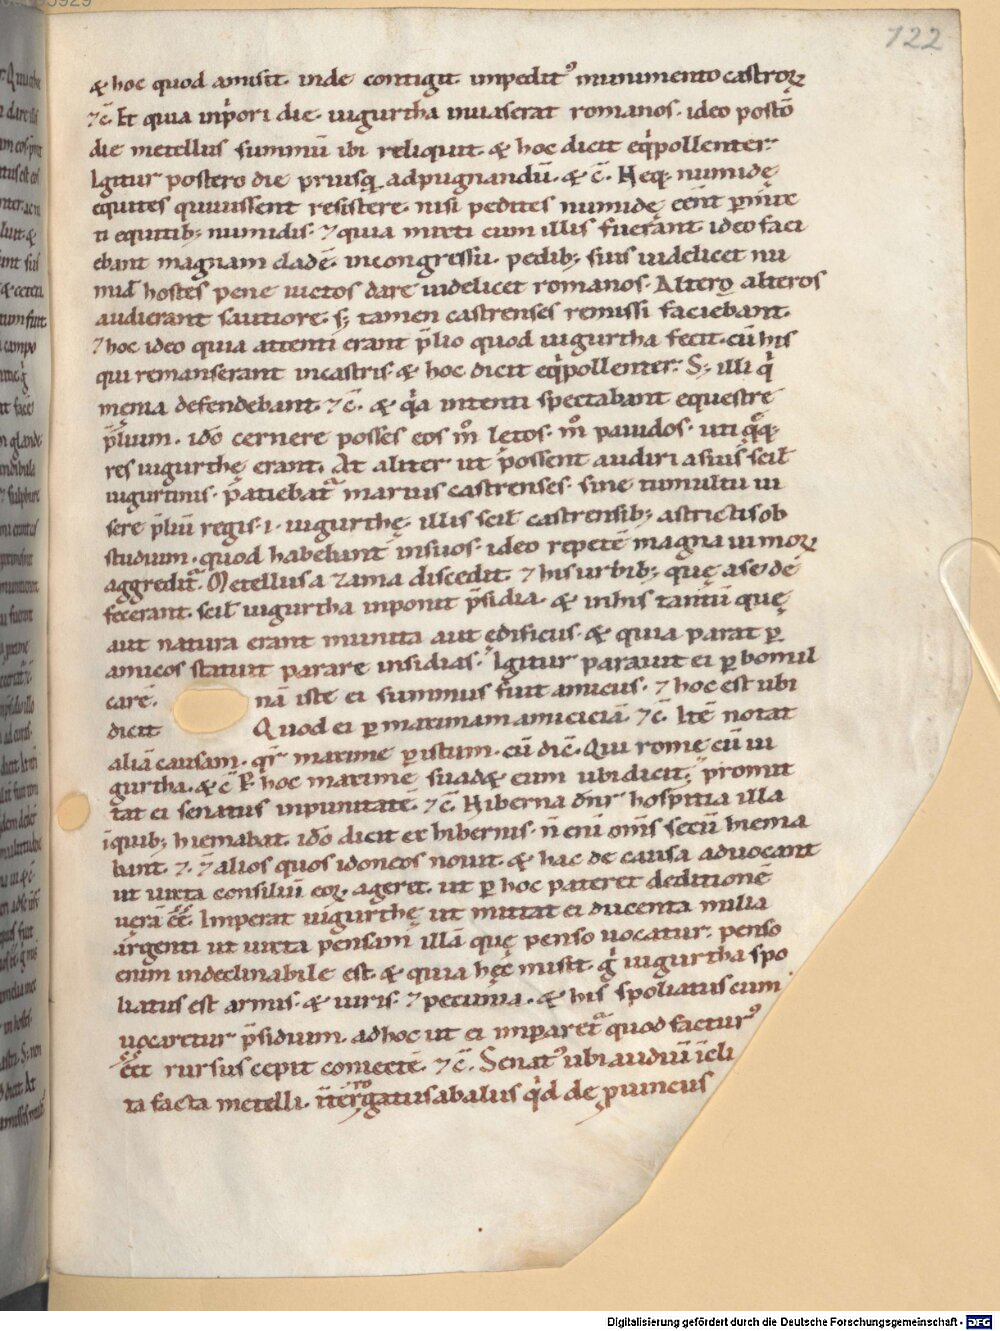 122
& hoc quod amisit. inde contigit. impedit᾽ munimento castroꝝ
⁊c̄. Et quia inp̄ori die. iugurtha inuaserat romanos. ideo posto᷒
die metellus summū ibi reliquit. & hoc dicit eq̇pollenter.
Igitur postero die priusq̄ adpugnandū. & c̄. Neq; numidę
equites quiuissent resistere. nisi pedites numidę eēnt
ti equitib; numidis. ⁊ quia mixti cum illis fuerant. ideo faci
ebant magnam cladē. incongressu. pedib; suis uidelicet nu
mid̄ hostes pene uictos dare uidelicet romanos. Alteros alteros
audierant s; tamen castrenses remissi faciebant.
⁊ hoc ideo quia attenti erant p̄lio quod iugurtha fecit. cū his
qui remanserant incastris. & hoc dicit eq̇pollenter. S; illi q̇
męnia defendebant. ⁊c̄. & q̇a intenti spectabant equestre
p̄lium. idō cernere posses eos m̊ letos. m̊ pauidos. uti
res iugurthę erant. At aliter ut possent audiri asuis scil̄
iugurtinis. marius castrenses. sine tumultu ui
sere p̄liū regis. i. iugurthę. illis scil̄ castrensib; astrictis ob
studium. quod habebant insuos. ideo repetē magna ui moꝝ
aggredit᷑. Metellus a zama discedit. ⁊ his urbib; quę ase dē
fecerant. scil̄ iugurtha inponit p̄sidia. & inhis tantū quę
aut natura erant munita aut ędificiis. & quia parat ꝑ
amicos statuit parare insidias. Igitur parauit ei ꝑ bomil
carē. nā iste ei summus fuit amicus. ⁊ hoc est ubi
dicit Quod ei ꝑ maximam amiciciā. ⁊c̄. Itē notat
aliā causam. q̄r maxime ꝑ istum. cū dic̄. Qui rome cū iu
gurtha. & c̄ hoc maxime suad& eum ubi dicit. promit
tat ei senatus inpunitatē. ⁊c̄. Hiberna dn̄r hospitia illa
iquib; hiemabat. idō dicit ex hibernis. n̄ eni om̄s secū hiema
bant. ⁊ alios quos idoneos nouit. & hac de causa aduocant
ut iuxta consiliū eoꝝ ageret. ut ꝑ hoc pateret deditionē
uerā eē. Imperat iugurthę ut mittat ei ducenta milia
argenti ut iuxta pensam illā quę penso uocatur. penso
enim indeclinabile est. & quia hęc misit. g̊ iugurtha spo
liatus est armis. & uiris. ⁊ pecunia. & his spoliatus cum
uocaretur p̄sidium. adhoc ut ei imparet᷑ quod factur᾽
eēt rursus cepit
ta facta metelli. abalus q̇d de ꝓuinciis
Digitalisierung gefördert durch die Deutsche Forschungsgemeinschaft - DFG